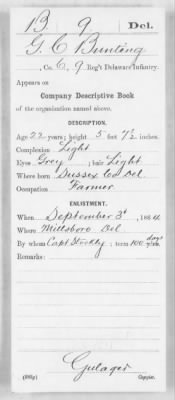 B 9 Del.
G. C. Bunting
, Co. C, 9 Reg't Delaware Infantry.
Appears on
Company Descriptive Book
of the organization named above.
DESCRIPTION.
Age 22 years; height 5 feet 7½ inches.
Complexion Light
Eyes Grey ; hair Light
Where born Sussex Co Del
Occupation Farmer
ENLISTMENT.
When September 3d , 1864
Where Millsboro Del
By whom Capt Stockly ; term 100 days
Remarks:
Gulager
(383g) Copyist.